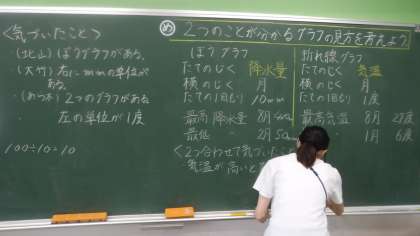 め 2つのことが分かるグラフの見方を考えよう
<気づいたこと>
(北山)ぼうグラフがある。
(大竹)右にmmの単位が
ある。
2つのグラフがある
左の単位が1度
100÷10=10
ぼうグラフ
たてのじく 降水量
横のじく 月
たての1目もり 10mm
最高降水量 8月
最低 〃 2月
折れ線グラフ
たてのじく 気温
横のじく 月
たての1目もり 1度
最高気温 8月 27度
1月 6度
<2つ合わせて気づいたこ
気温が高いと